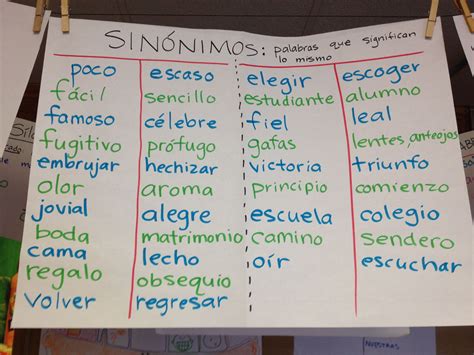 SINÓNIMOS: palabras que significan
lo mismo
poco escaso
fácil sencillo
famoso célebre
fugitivo prófugo
embrujar hechizar
olor aroma
jovial alegre
boda matrimonio
cama lecho
regalo obsequio
volver regresar
elegir escoger
estudiante alumno
fiel leal
gafas lentes, anteojos
victoria triunfo
principio comienzo
escuela colegio
camino sendero
oír escuchar